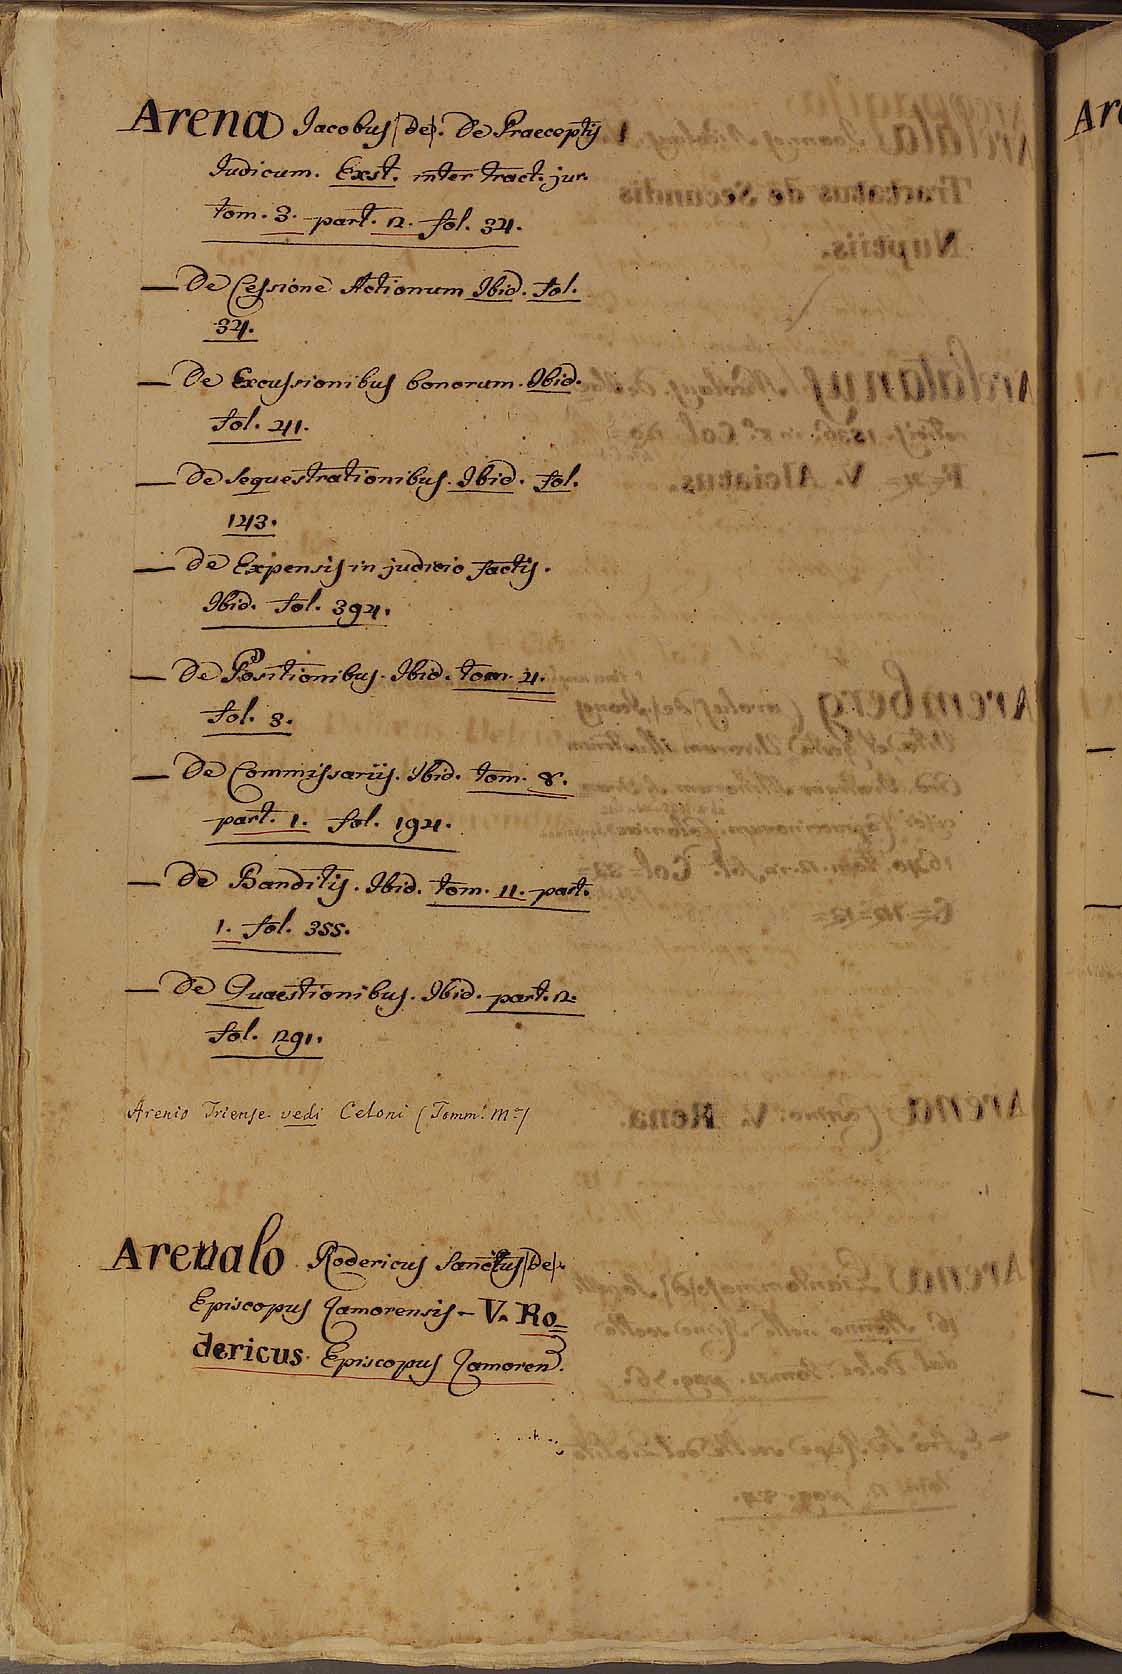 Arena Iacobus (de). De Praeceptis
Iudicum. Exst. inter tract. jur.
tom. 3. part. 2. fol. 34.
— De Cessione Actionum Ibid. fol.
34.
— De Excussionibus bonorum. Ibid.
fol. 41.
— De Sequestrationibus. Ibid. fol.
143.
— De Expensis in judicio factis.
Ibid. fol. 394.
— De Positionibus. Ibid. tom. 4.
fol. 3.
— De Commissariis. Ibid. tom. 8.
part. 1. fol. 194.
— De Banditis. Ibid. tom. 11. part.
1. fol. 355.
— De Quaestionibus. Ibid. part. 2.
fol. 291.
Arenio Triense. vedi Celoni (Tomm. Mo)
Arevalo Rodericus Sanctius (de).
Episcopus Zamorensis - V. Ro=
dericus Episcopus Zamoren.
Are